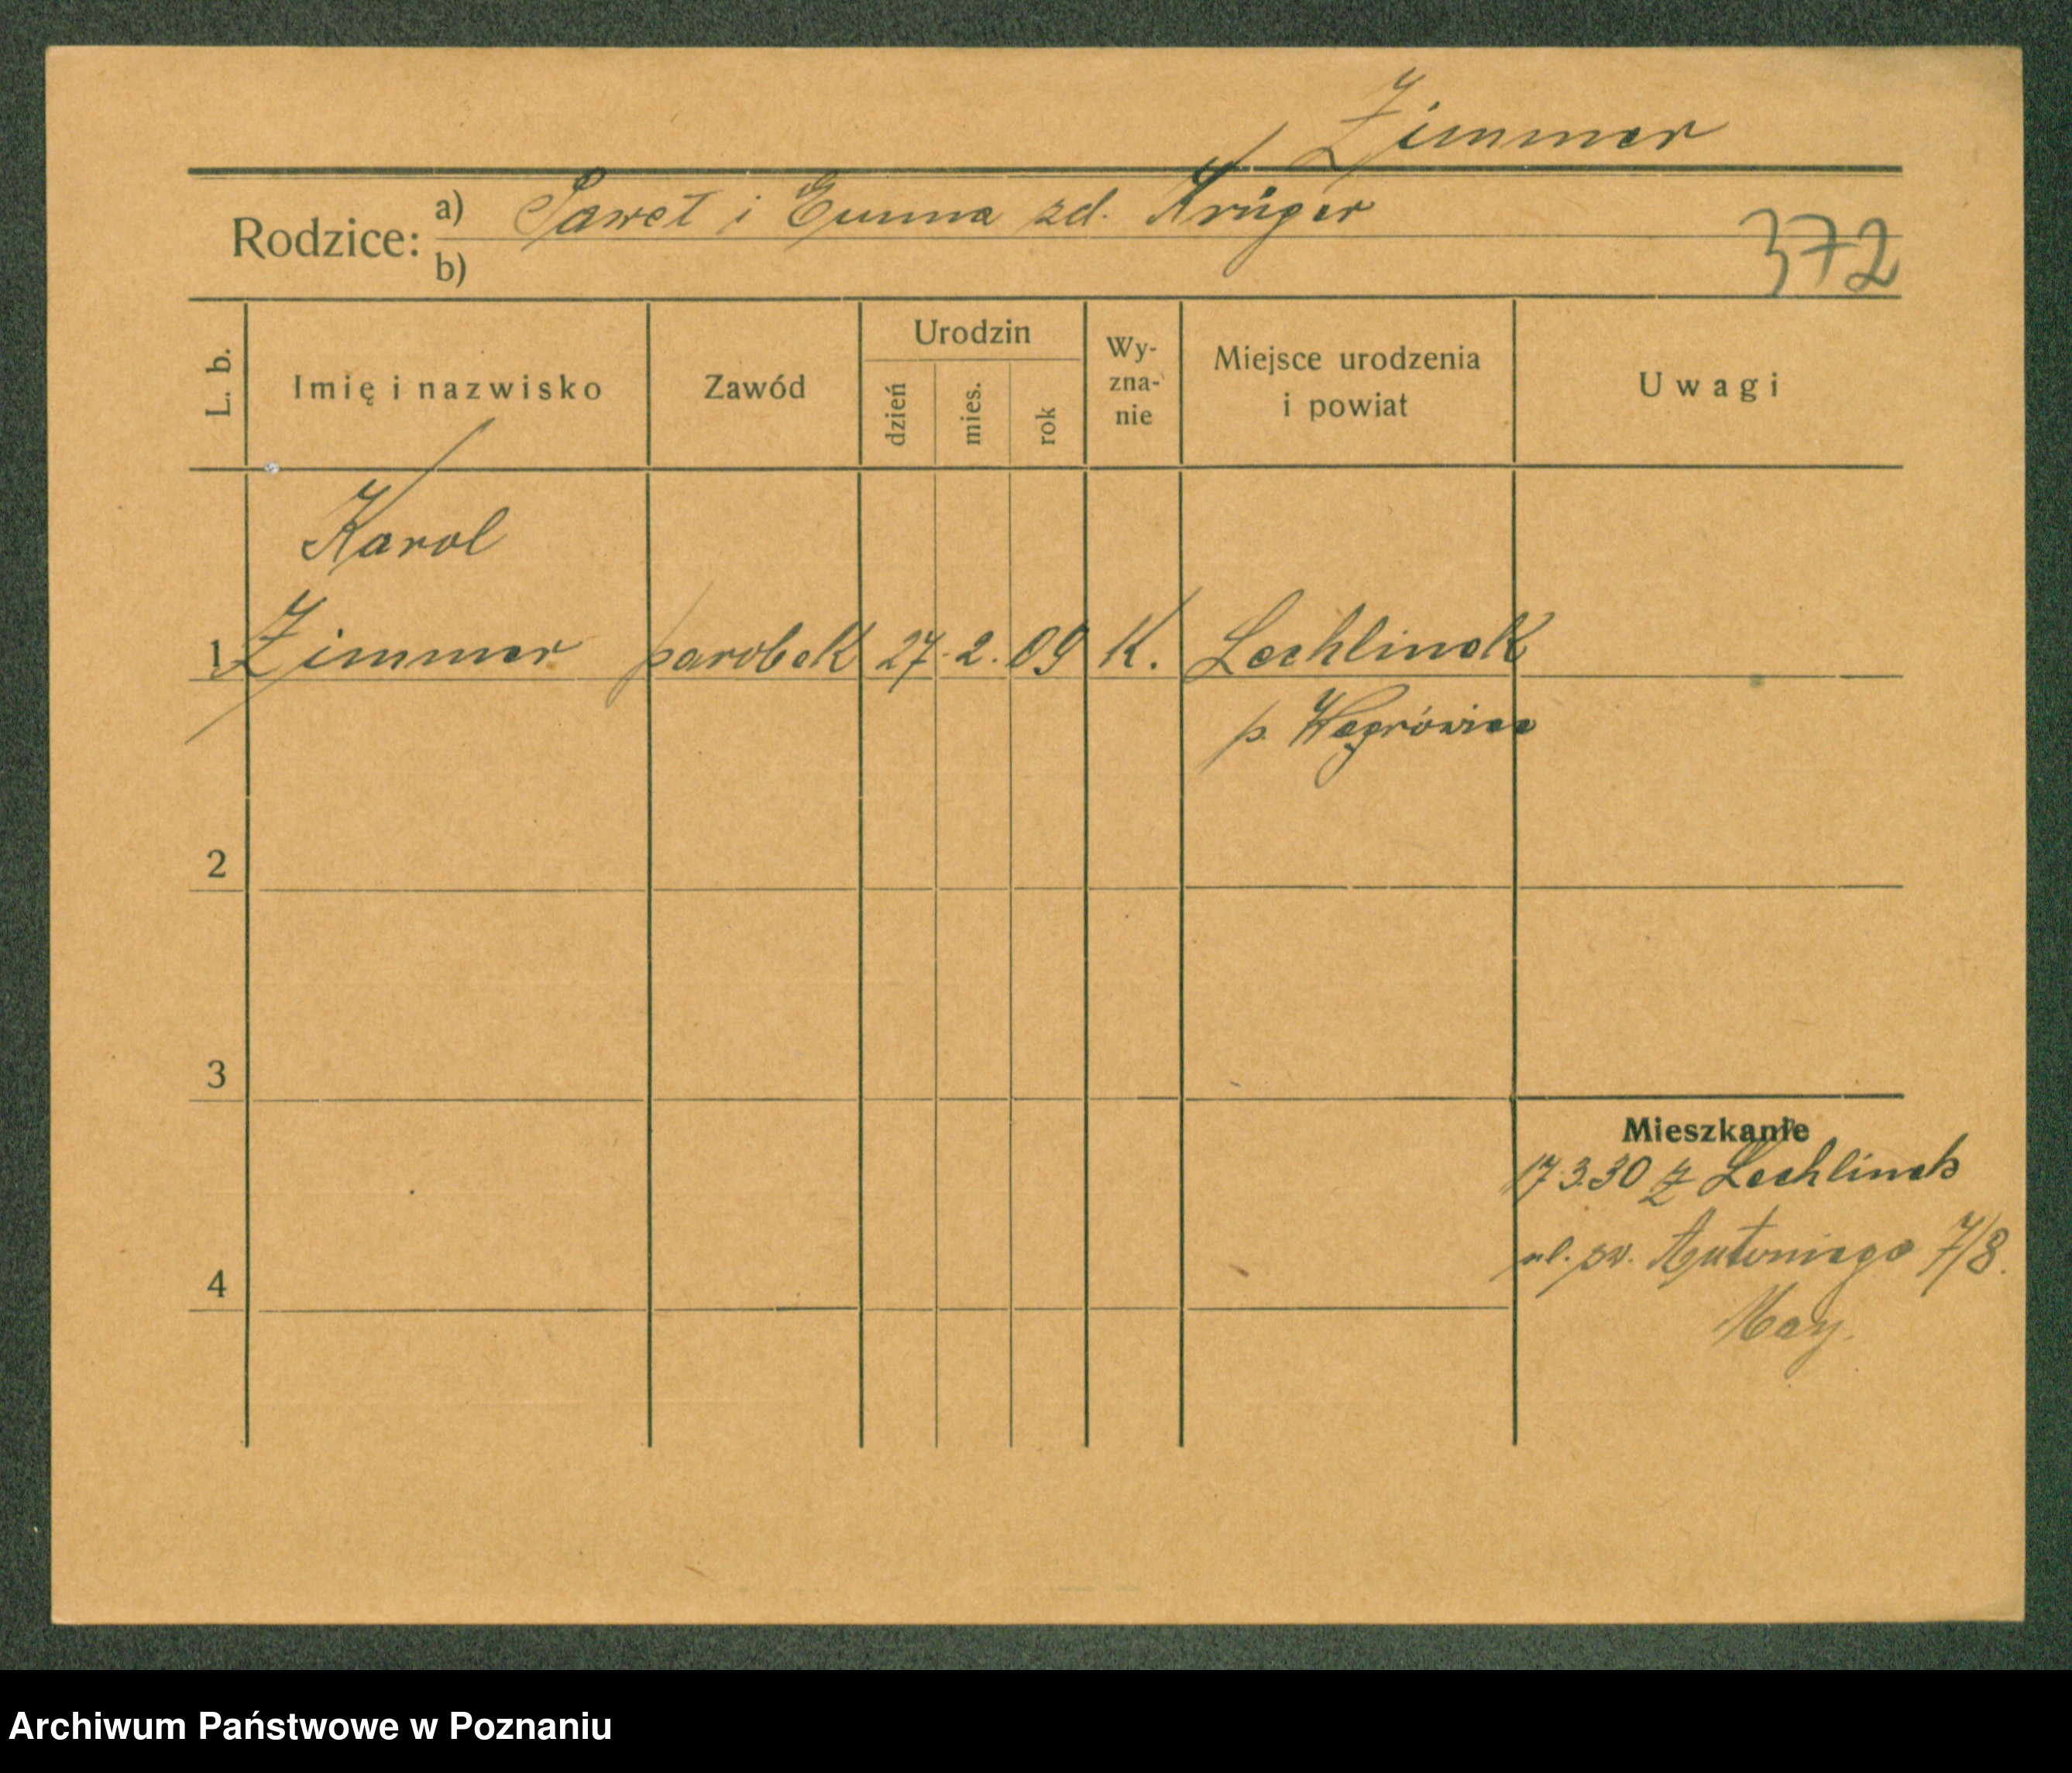 Zimmer
Rodzice: a) Paweł i Emma zd. Krüger
b)
372
L. b.
Imię i nazwisko
Zawód
Urodzin
dzień
mies.
rok
Wy-
zna-
nie
Miejsce urodzenia
i powiat
Uwagi
Karol
1 Zimmer parobek 27. 2. 09 K. Lechlinek
p. Wągrówiec
2
3
4
Mieszkanie
17 3.30 z Lechlinek
ul. św. Antoniego 7/8.
May.
Archiwum Państwowe w Poznaniu